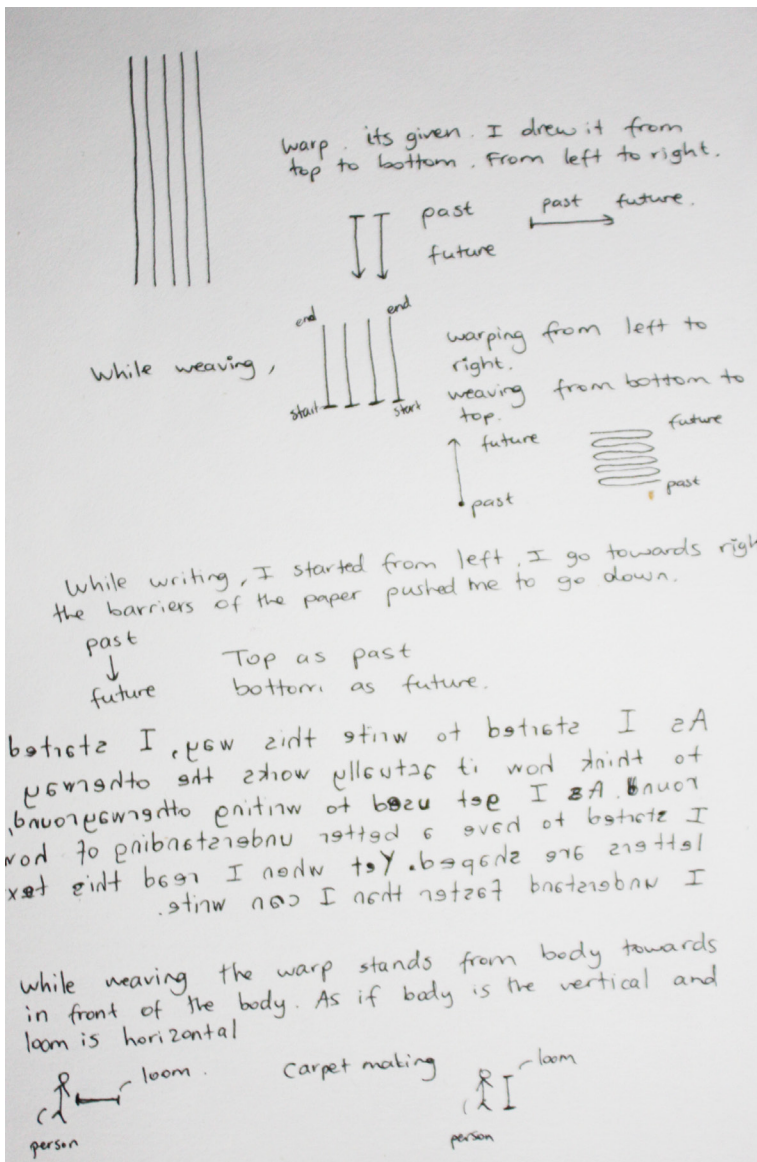 warp. its given. I drew it from
top to bottom. From left to right.
past
future
past future.
While weaving,
end end
start start
warping from left to
right.
weaving from bottom to
top.
future
past
future
past
While writing, I started from left. I go towards righ
the barriers of the paper pushed me to go down.
past
future
Top as past
bottom as future.
As I started to write this way, I started
to think how it actually works the otherway
round. As I get used to writing otherwayround,
I started to have a better understanding of how
letters are shaped. Yet when I read this tex
I understand faster than I can write.
while weaving the warp stands from body towards
in front of the body. As if body is the vertical and
loom is horizontal
loom.
person
Carpet making
loom
person